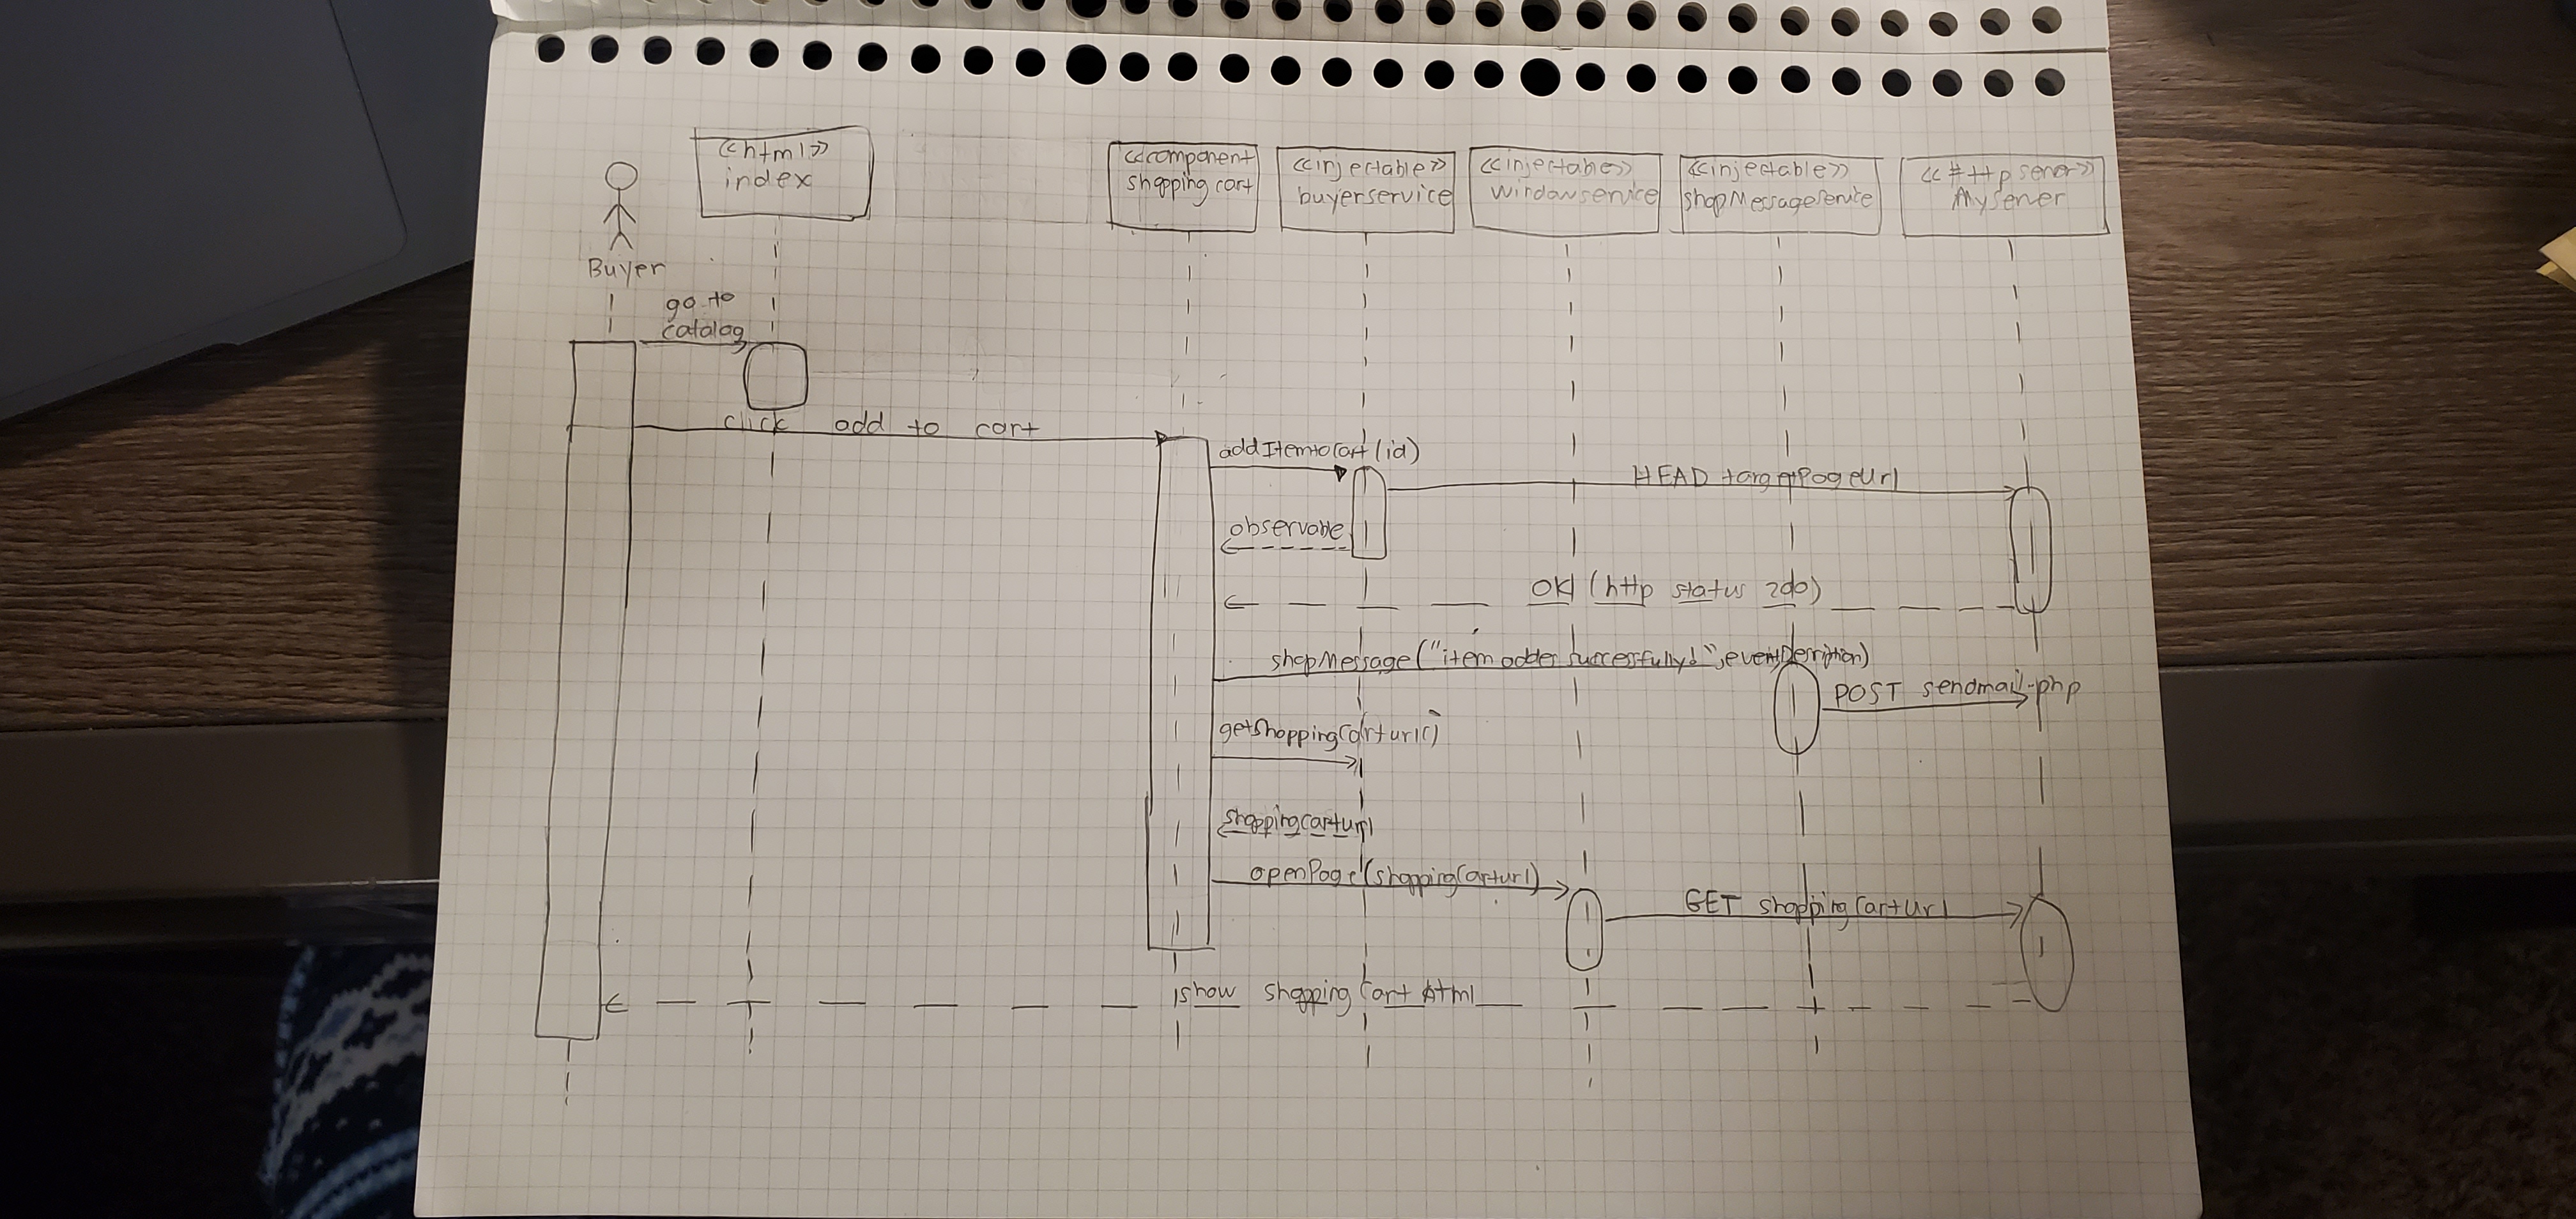 <<html>>
index
<<component
shopping cart
<<injectable>>
buyerservice
<<injectable>>
windowservice
<<injectable>>
shopMessageService
<<Http server>>
MyServer
Buyer
go to
catalog
click add to cart
addItemtoCart(id)
HEAD targetPageUrl
observable
OK (http status 200)
shopMessage("item added successfully!", eventDescription)
POST sendmail.php
getShoppingCarturl()
shoppingCarturl
openPage(shoppingCarturl)
GET shoppingCartUrl
show shopping Cart html